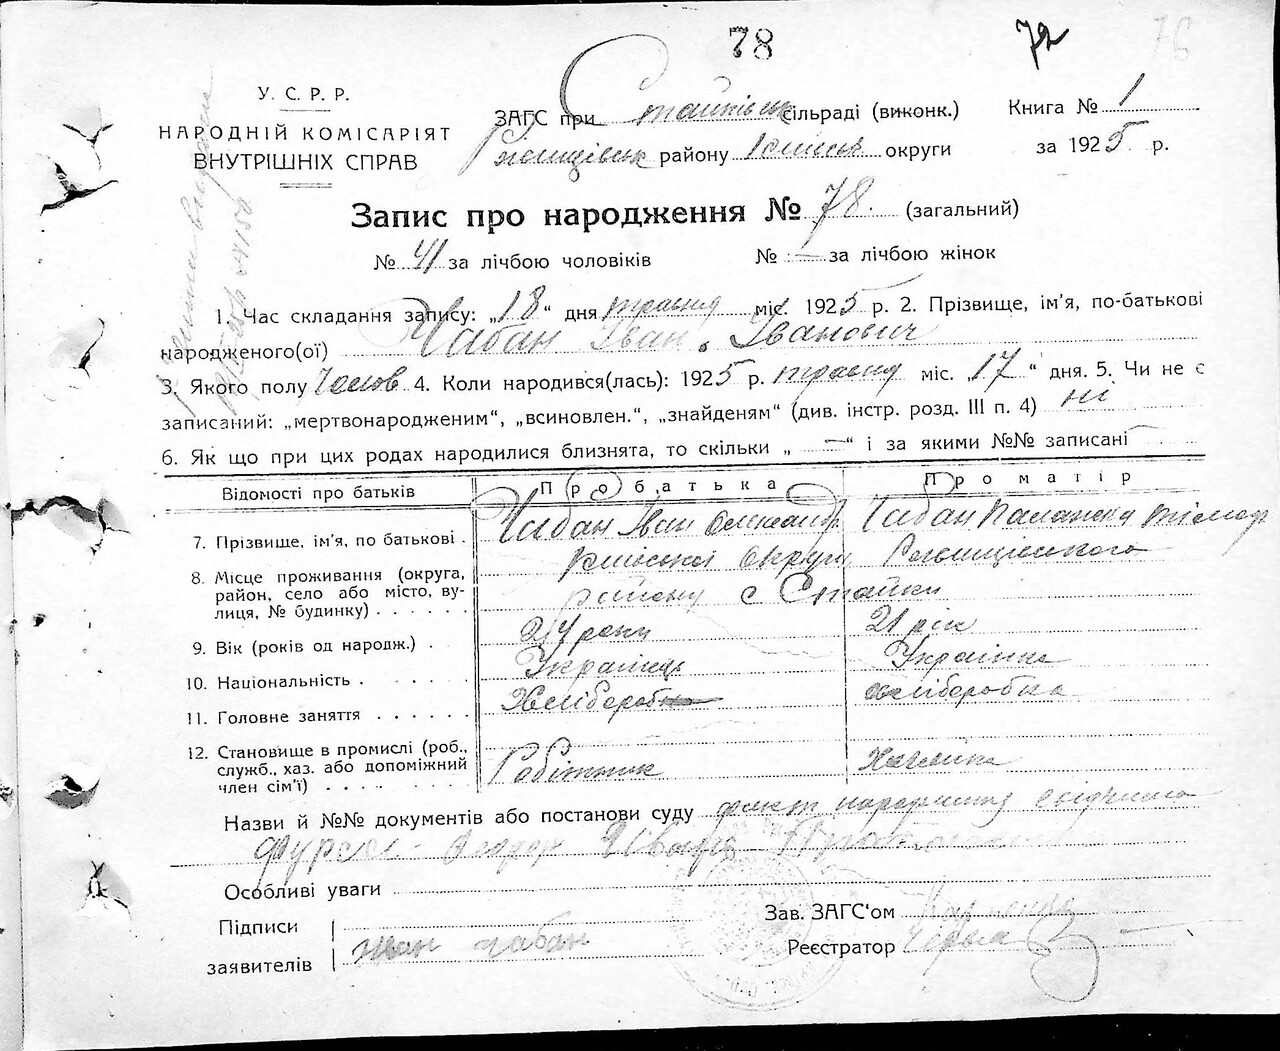 78
72
76
У. С. Р. Р.
НАРОДНІЙ КОМІСАРІЯТ
ВНУТРІШНІХ СПРАВ
ЗАГС при Стайківськ сільраді (виконк.)
Ржищівськ району Київськ округи
Книга № 1
за 1925 р.
Запис про народження № 78. (загальний)
№ 41 за лічбою чоловіків
№ — за лічбою жінок
1. Час складання запису: „18“ дня травня міс. 1925 р. 2. Прізвище, ім'я, по-батькові
народженого(ої) Чабан Іван Іванович
3. Якого полу Чолов 4. Коли народився(лась): 1925 р. травня міс. „17“ дня. 5. Чи не є
записаний: „мертвонародженим“, „всиновлен.“, „знайденям“ (див. інстр. розд. III п. 4) ні
6. Як що при цих родах народилися близнята, то скільки „—“ і за якими №№ записані
Відомості про батьків
Про батька
Про матір
7. Прізвище, ім'я, по батькові .
Чабан Іван Олександр
Чабан
8. Місце проживання (округа,
район, село або місто, ву-
лиця, № будинку) . . . . .
Київської округи Ржищівського
району с Стайки
9. Вік (років од народж.) .
24 роки
21 рік
10. Національність . . . . . .
Українець
Українка
11. Головне заняття . . . . . .
Хлібороб
хліборобка
12. Становище в промислі (роб.,
служб., хаз. або допоміжний
член сім'ї) . . . . . . .
Робітник
Хазяйка
Назви й №№ документів або постанови суду факт народження
Особливі уваги
Підписи
заявителів
Чабан
Зав. ЗАГС'ом
Реєстратор